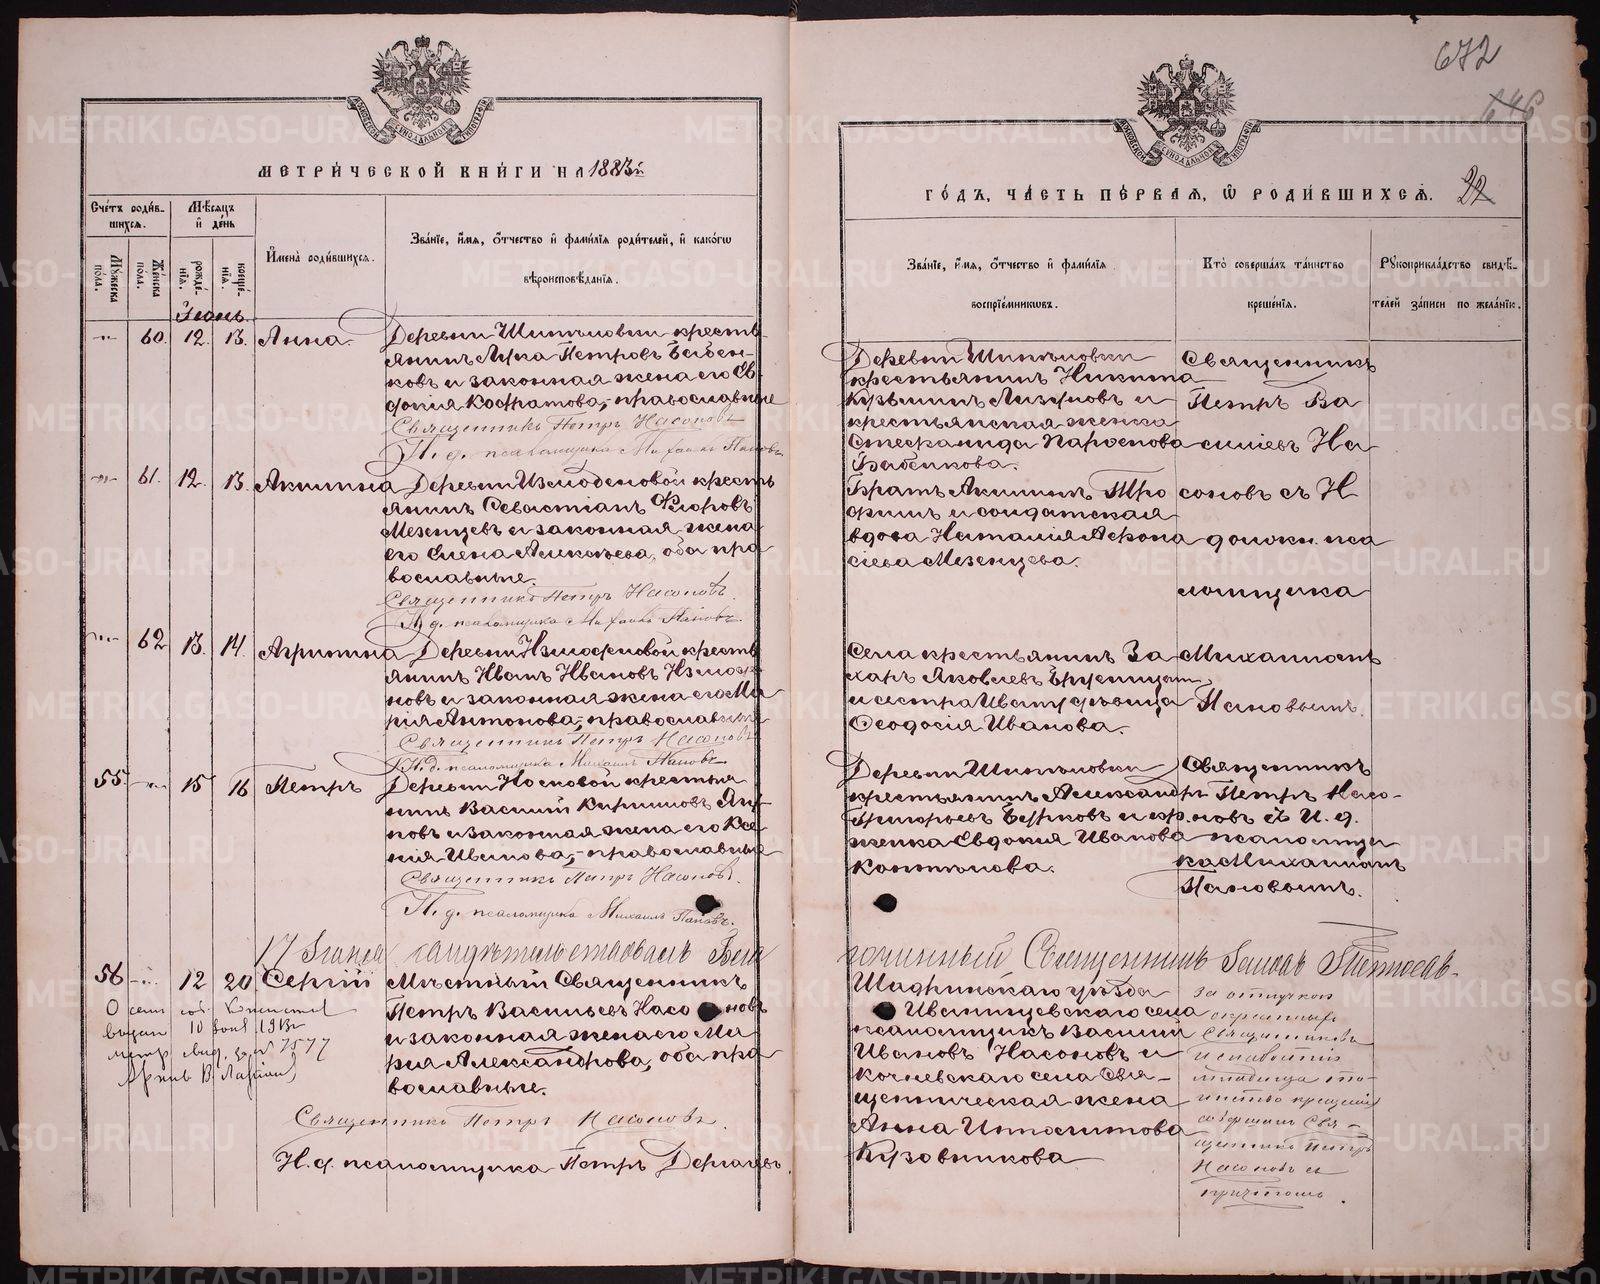 672
646
МЕТРИ́ЧЕСКОЙ КНИ́ГИ НА 1883й
ГО́ДЪ, ЧА́СТЬ ПЕ́РВАЯ, Ѿ РОДИ́ВШИХСЯ. 22
Сче́тъ роди́вшихся.
Мѣ́сяцъ и де́нь
Му́жеска по́ла.
Же́нска по́ла.
рожде́нія.
креще́нія.
И҆мена̀ роди́вшихся.
Зва́ніе, и҆́мя, ѻ҆́тчество и҆ фами́лія роди́телей, и҆ како́гѡ
вѣроисповѣ́данія.
Зва́ніе, и҆́мя, ѻ҆́тчество и҆ фами́лія
воспріе́мниковъ.
Кто̀ соверша́лъ та́инство
креще́нія.
Рукоприкла́дство свидѣ́-
телей за́писи по жела́нію.
Іюнь.
60. 12. 13. Анна.
Деревни Шипѣловки кресть
янинъ Лука Петровъ Бабен-
ковъ и законная жена его Ев-
докія Кодратова, православные
Священникъ Петръ Насоновъ
И. д. псаломщика Михаилъ Пановъ
Деревни Шипѣловки
крестьянинъ Никита
Кузьминъ и
крестьянская женка
Стефанида
Бабенкова.
Священникъ
Петръ Ва
сильевъ На
соновъ съ И
должн. пса
ломщика
Михаиломъ
Пановымъ.
61. 12. 13. Акилина
Деревни Измоденовой кресть
янинъ Севастіанъ Ѳедоровъ
Мезенцевъ и законная жена
его Елена Алексѣева, оба пра
вославные.
Священникъ Петръ Насоновъ.
И. д. псаломщика Михаилъ Пановъ.
Братъ Акилины Тро
фимъ и солдатская
вдова Наталія Афона
сіева Мезенцева.
62 13. 14. Агрипина
Деревни Измоденовой кресть
янинъ Иванъ Ивановъ Измоде
новъ и законная жена его Ма
рія Антонова, православные
Священникъ Петръ Насоновъ
И. д. псаломщика Михаилъ Пановъ
Села крестьянинъ За
харъ Яковлевъ
и сестра
Ѳеодосія Иванова.
55 15 16 Петръ
Деревни Носковой крестья
нинъ Василій Кириловъ
новъ и законная жена его Ксе
нія Иванова, православные
Священникъ Петръ Насоновъ.
И. д. псаломщика Михаилъ Пановъ.
Деревни Шипѣловки
крестьянинъ Александръ
Григорьевъ и кр.
женка Евдокія Иванова
Коптелова.
Священникъ
Петръ Насо-
новъ съ И. д.
псаломщи
ка Михаиломъ
Пановымъ.
17 Января свидѣтельствовалъ Благочинный Священникъ
56 12 20 Сергій
Мѣстный Священникъ
Петръ Васильевъ Насоновъ
и законная жена его Ма
рія Александрова, оба пра
вославные.
Священникъ Петръ Насоновъ.
И. д. псаломщика Петръ Дергачевъ.
О семъ
выдан 10
метр. свид. за № 7577
Шадринскаго уѣзда
Иванищевскаго села
псаломщикъ Василій
Ивановъ Насоновъ и
Кочневскаго села Свя-
щенническая жена
Анна Ипполитова
Кузовникова
За отлучкою
окрестныхъ
Священниковъ
младенца та-
инство крещенія
совершилъ Свя-
щенникъ Петръ
Насоновъ съ
причтомъ.
METRIKI.GASO-URAL.RU